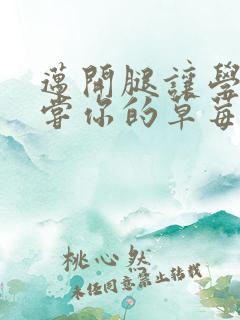 邁開腿讓學
嘗你的草莓
桃心然
未经同意禁止转载